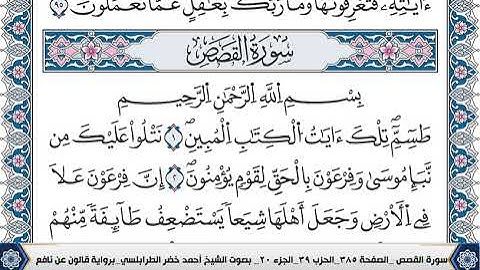 ءَايَٰتِهِۦ فَتَعْرِفُونَهَا وَمَا رَبُّكَ بِغَٰفِلٍ عَمَّا تَعْمَلُونَ ٩٥
سُورَةُ الْقَصَصِ
بِسْمِ اللَّهِ الرَّحْمَٰنِ الرَّحِيمِ
طَسِٓمِّٓ تِلْكَ ءَايَٰتُ الْكِتَٰبِ الْمُبِينِ ١ نَتْلُواْ عَلَيْكَ مِن
نَّبَإِ مُوسَىٰ وَفِرْعَوْنَ بِالْحَقِّ لِقَوْمٍ يُؤْمِنُونَ ٢ إِنَّ فِرْعَوْنَ عَلَا
فِي الْأَرْضِ وَجَعَلَ أَهْلَهَا شِيَعاً يَسْتَضْعِفُ طَآئِفَةً مِّنْهُمْ
سورة القصص _الصفحة ٣٨٥_الحزب ٣٩_الجزء ٢٠_ بصوت الشيخ أحمد خضر الطرابلسي_برواية قالون عن نافع